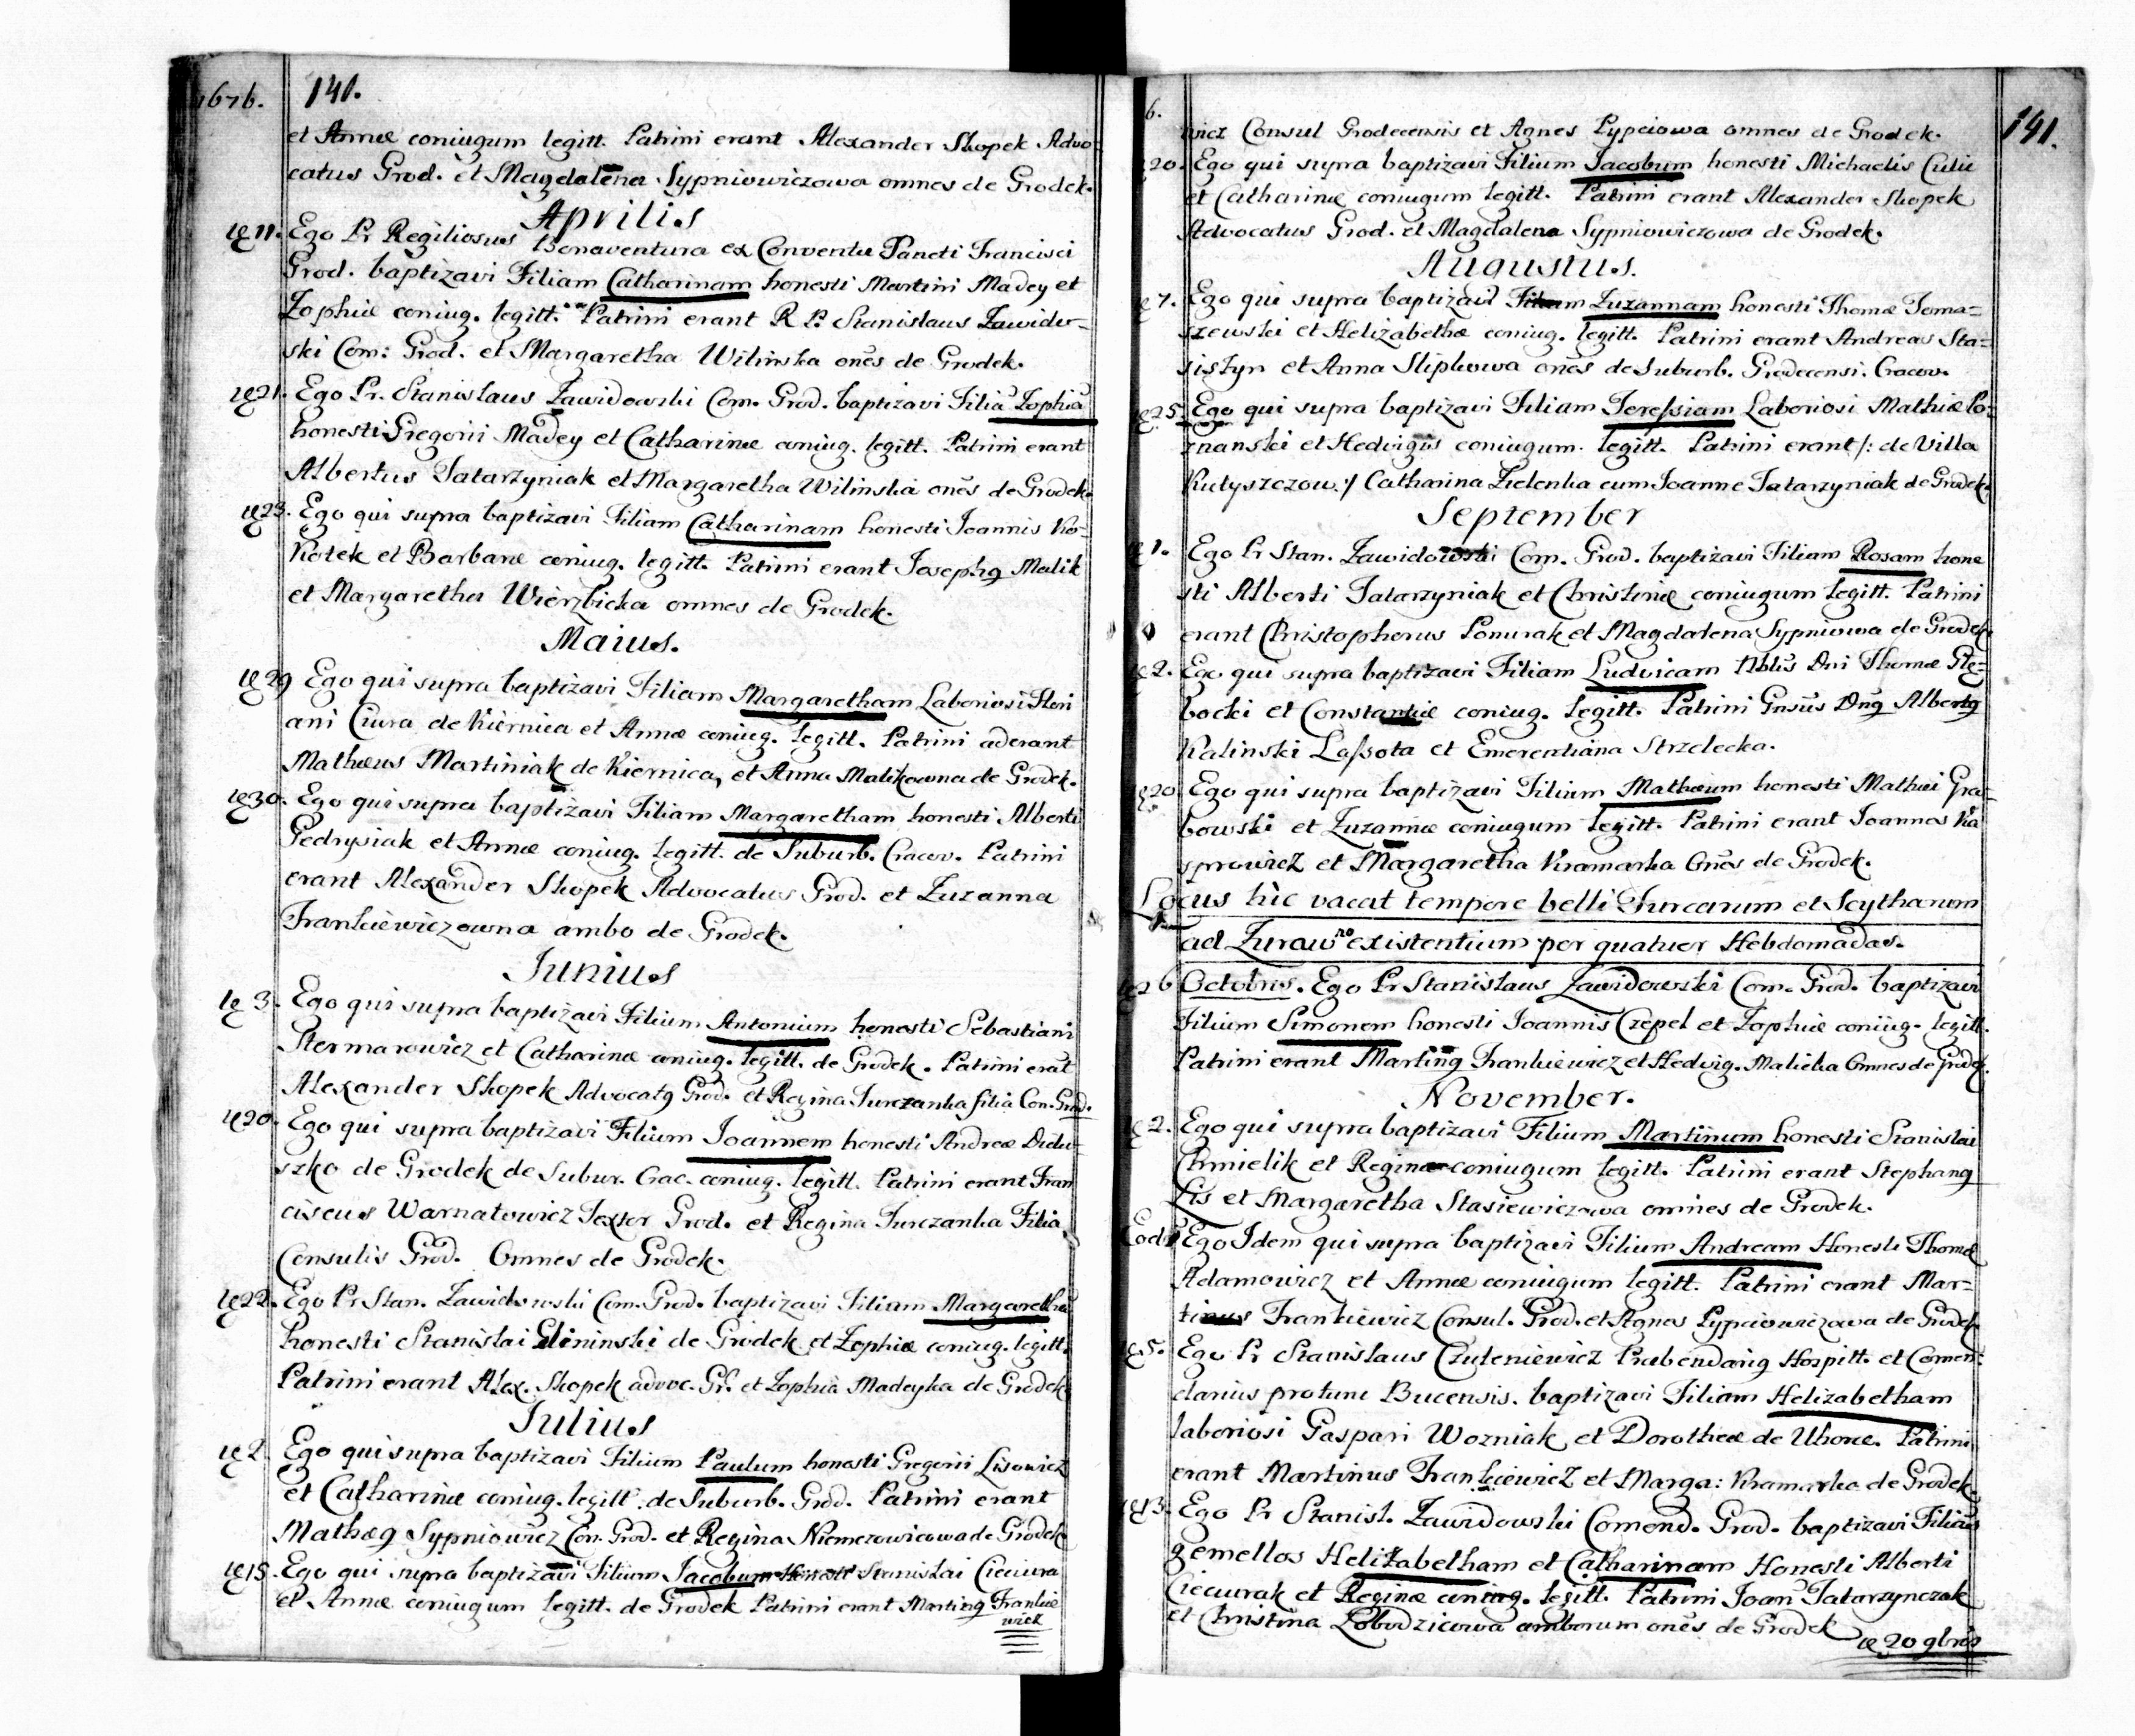 1676. 140.
et Annæ coniugum legitt. Patrini erant Alexander Skopek Advo-
catus Grod. et Magdalena Sypniowiczowa omnes de Grodek.
Aprilis
11. Ego Pr Regiliosus Bonaventura ex Conventu Sancti Francisci
Grod. baptizavi Filiam Catharinam honesti Martini Madey et
Zophiæ coniug. legitt. Patrini erant R P. Stanislaus Zawido-
ski Com: Grod. et Margaretha Wilinska onēs de Grodek.
21. Ego Pr. Stanislaus Zawidowski Com. Grod. baptizavi Filiā Zophiā
honesti Gregorii Madey et Catharinæ coniug. legitt. Patrini erant
Albertus Tatarzyniak et Margaretha Wilinska onēs de Grodek.
23. Ego qui supra baptizavi Filiam Catharinam honesti Joannis Ko-
Kotek et Barbaræ coniug. legitt. Patrini erant Joseph9 Malik
et Margaretha Wierzbicka omnes de Grodek.
Maius.
29 Ego qui supra baptizavi Filiam Margaretham Laboriosi Flori
ani Ciura de Kiernica et Annæ coniug. legitt. Patrini aderant
Mathæus Martiniak de Kiernica, et Anna Malikowna de Grodek.
30. Ego qui supra baptizavi Filiam Margaretham honesti Alberti
Pedrysiak et Annæ coniug. legitt. de Suburb. Cracov. Patrini
erant Alexander Skopek Advocatus Grod. et Zuzanna
Frankiewiczowna ambo de Grodek.
Junius
3. Ego qui supra baptizavi Filium Antonium honesti Sebastiani
Stermarowicz et Catharinæ coniug. legitt. de Grodek. Patrini erāt
Alexander Skopek Advocat9 Grod. et Regina Turczanka filia Con. Grod.
20. Ego qui supra baptizavi Filium Joannem honesti Andreæ Didu-
szko de Grodek de Subur. Crac. coniug. legitt. Patrini erant Fran
ciscus Warnatowicz Textor Grod. et Regina Turczanka Filia
Consulis Grod. Omnes de Grodek.
22. Ego Pr Stan. Zawidowski Com. Grod. baptizavi Filiam Margarethā
honesti Stanislai Glininski de Grodek et Zophiæ coniug. legitt.
Patrini erant Alex. Skopek advoc. Gr. et Zophia Madeyka de Grodek
Julius
2 Ego qui supra baptizavi Filium Paulum honesti Gregorii Lisowicz
et Catharinæ coniug. legitt. de Suburb. Grod. Patrini erant
Mathæ9 Sypniowicz Con. Grod. et Regina Niemczowicowa de Grodek
15. Ego qui supra baptizavi Filium Jacobum Honesti Stanislai Cieciura
et Annæ coniugum legitt. de Grodek Patrini erant Martin9 Frankie
wicz
6. 141.
wicz Consul Grodecensis et Agnes Pypciowa omnes de Grodek.
20. Ego qui supra baptizavi Filium Jacobum honesti Michaelis Culii
et Catharinæ coniugum legitt. Patrini erant Alexander Skopek
Advocatus Grod. et Magdalena Sypniowiczowa de Grodek.
Augustus.
7. Ego qui supra baptizavi Filiam Zuzannam honesti Thomæ Toma=
szewski et Helizabethæ coniug. legitt. Patrini erant Andreas Sta=
siszyn et Anna Slipkowa onēs de Suburb. Grodecensi. Cracov.
25. Ego qui supra baptizavi Filiam Teressiam Laboriosi Mathiæ Po-
znanski et Hedvigis coniugum legitt. Patrini erant /: de Villa
Kutyszczow :/ Catharina Zielenka cum Joanne Tatarzyniak de Grodek.
September
1. Ego Pr Stan. Zawidowski Com. Grod. baptizavi Filiam Rosam hone
sti Alberti Tatarzyniak et Christinæ coniugum legitt. Patrini
erant Christophorus Ponurak et Magdalena Sypniowa de Grodek
2. Ego qui supra baptizavi Filiam Ludvicam Nblis Dni Thomæ Stę-
bocki et Constantiæ coniug. legitt. Patrini Gnsūs Dn9 Albert9
Kalinski Lassota et Emerentiana Strzelecka.
20 Ego qui supra baptizavi Filium Mathæum honesti Mathiæi Gra-
bowski et Zuzannæ coniugum legitt. Patrini erant Joannes Ka
sprowicz et Margaretha Kramarka Onēs de Grodek.
Locus hic vacat tempore belli Turcarum et Scytharum
ad Zurawno existentium per quatuor Hebdomadas.
26 Octobris. Ego Pr Stanislaus Zawidowski Com. Grod. baptizavi
Filium Simonem honesti Joannis Czepel et Zophiæ coniug. legitt.
Patrini erant Martin9 Frankiewicz et Hedvig. Malicka Omnes de Grodek.
November.
2. Ego qui supra baptizavi Filium Martinum honesti Stanislai
Chmielik et Reginæ coniugum legitt. Patrini erant Stephan9
Lis et Margaretha Stasiewiczowa omnes de Grodek.
Eodē Ego Idem qui supra baptizavi Filium Andream Honesti Thomæ
Adamowicz et Annæ coniugum legitt. Patrini erant Mar-
tinus Frankiewicz Consul. Grod. et Agnes Pypciowiczowa de Grodek
5. Ego Pr Stanislaus Czuleniewicz Præbendari9 Hospitt. et Comen-
darius protunc Bucensis. baptizavi Filiam Helizabetham
laboriosi Gaspari Wozniak et Dorotheæ de Uhorce. Patrini
erant Martinus Frankiewicz et Marga: Kramarka de Grodek
13. Ego Pr Stanisl. Zawidowski Comend. Grod. baptizavi Filias
gemellas Helizabetham et Catharinam Honesti Alberti
Cieciurak et Reginæ coniug. legitt. Patrini Joan Tatarzynczak
et Christina Lobodzicowa amborum onēs de Grodek
20 9bris